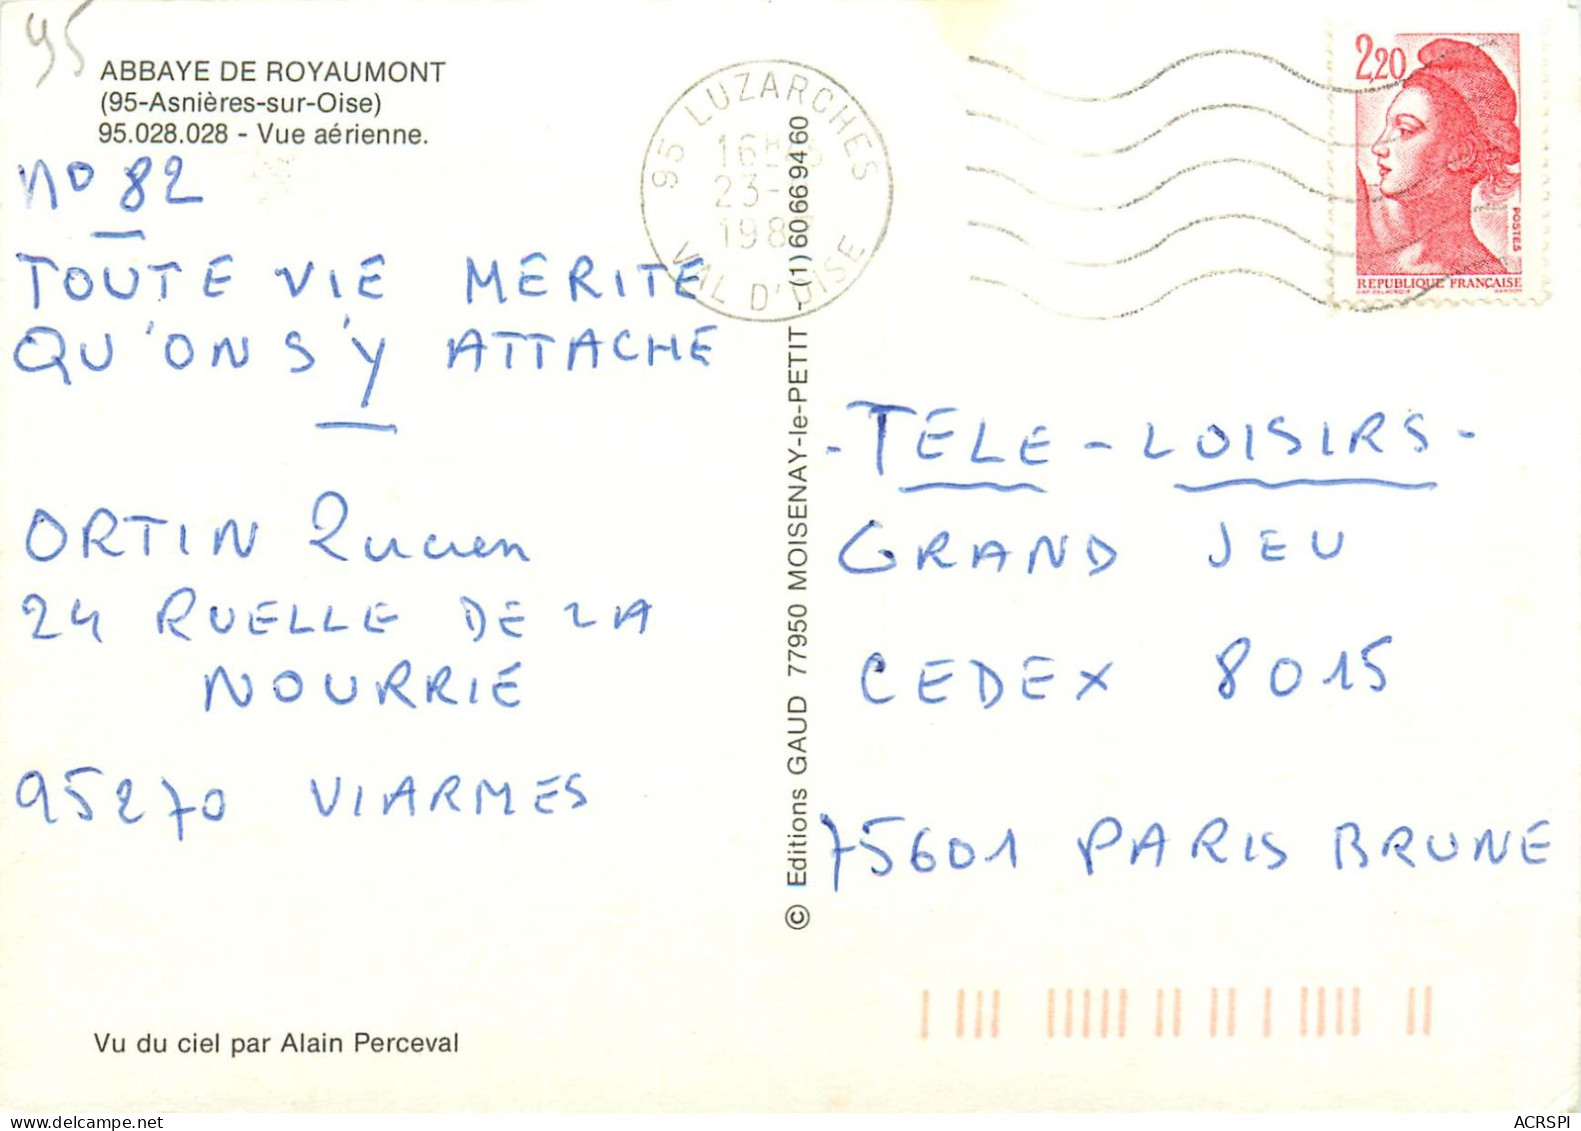 95
ABBAYE DE ROYAUMONT
(95-Asnières-sur-Oise)
95.028.028 - Vue aérienne.
no 82
TOUTE VIE MERITE
QU'ON S'Y ATTACHE
ORTIN Lucien
24 RUELLE DE LA
NOURRIE
95270 VIARMES
Vu du ciel par Alain Perceval
95 LUZARCHES
23-
VAL D'OISE
© Editions GAUD 77950 MOISENAY-le-PETIT - (1) 60669460
2,20
POSTES
REPUBLIQUE FRANÇAISE
- TELE - LOISIRS -
GRAND JEU
CEDEX 8015
75601 PARIS BRUNE
ACRSPI